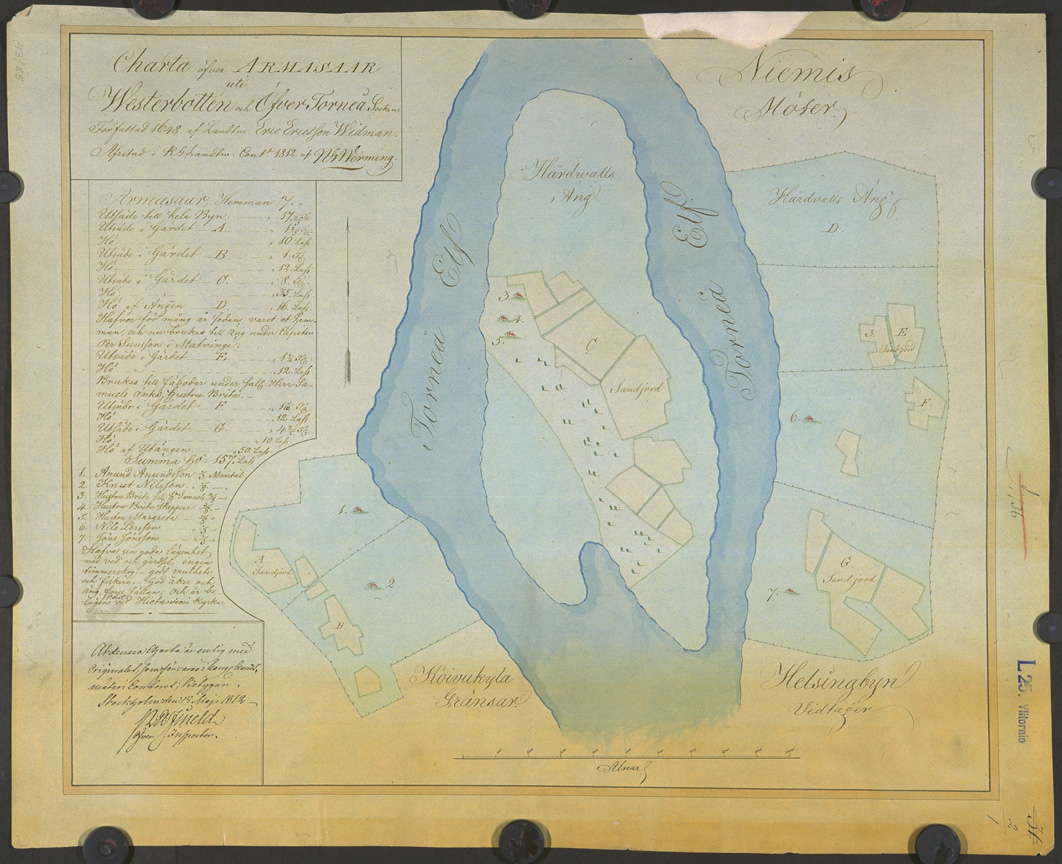 Charta öfver ARMASAAR
uti
Westerbotten och Öfver Torneå Sockn
Författad 1648 af Landtm. Eric Ericsson Widman.
Afritad i K. G. Landtm. Cont. 1812 af
Armasaar, Hemman 7.
Utsäde till hela Byn
Utsäde i Gärdet A.
Hö 10. Lass
Utsäde i Gärdet B
Hö 12. Lass
Utsäde i Gärdet C. 8.
Hö 35. Lass
Hö af Ängen D. 16. Lass
Hafver för mång år sedan varet et Hem-
man, och nu brukas till äng under Capiten
Per
Utsäde i Gärdet E.
Hö 12. Lass
Brukas till fäbodar under Sal. Herr Sa-
muels Änka, Hustru Brita.
Utsäde i Gärdet F.
Hö 12. Lass
Utsäde i Gärdet G.
Hö 10. Lass
Hö af Utängen 50. Lass
Summa hö: 157. Lass
1. Anund Anundsson Mantal
2. Knut Nilsson
3. Hustru Brita Sal. Hr Samuels
4. Hustru Brita
5. Hustru Margreta
6. Nils Persson
7. Jöns Jönsson
Hafva en goda lägenhet
med ved och gärdsel, ingen
timmerskog, godt mulbete
och fiskeri. God åker och
äng
belägen vid Hietaniemi Kyrka
Att denna Charta är enlig med
Originalet, som förvaras i Kongl. Landt-
mäteri Contoret; Betygar.
Stockholm den 15 Maji 1812
Inspector.
Niemis
Möter
Hårdvalls
Äng
Hårdvalls Äng
D.
Torneå Elf
Torneå Elf
3.
4.
5.
C
Sandjord
3. E
Sandjord
F
6.
G
Sandjord
7.
1.
2
A
Sandjord
B
Koivukyla
Gränsar
Helsingbyn
Vidtager
Alnar
L 25. Vittornio